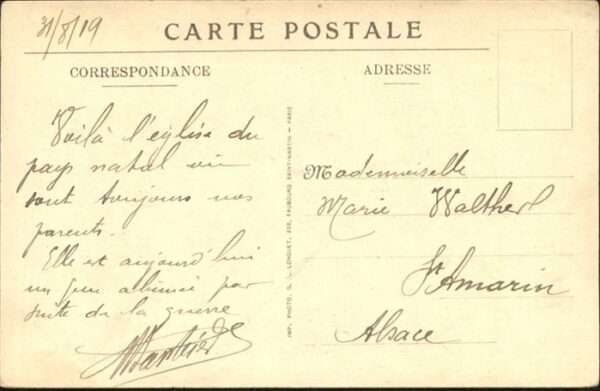 31/8/19
CARTE POSTALE
CORRESPONDANCE
ADRESSE
Voilà l'église du
pays natal où
sont toujours nos
parents.
Elle est aujourd'hui
un peu abîmée par
suite de la guerre
Mademoiselle
Marie
St Amarin
Alsace
IMP. PHOTO. G. L. LONGUET, 252, FAUBOURG SAINT-MARTIN — PARIS